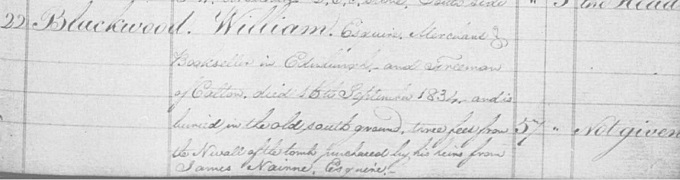 the head
22 Blackwood. William. Esquire, Merchant &
Bookseller in Edinburgh, and Freeman
of Calton, died 16th September 1834, and is
buried in the old south ground, three feet from 57 " Not given
the N wall of the tomb purchased by his heirs from
James Nairne, Esquire.